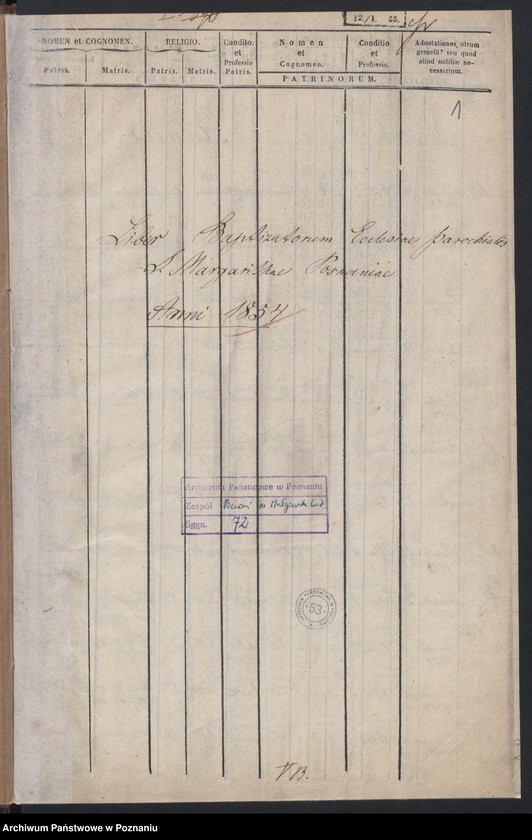 12./1. 55.
NOMEN et COGNOMEN. RELIGIO. Conditio. et Professio Patris. Nomen et Cognomen. Conditio et Professio. Adnotationes, utrum gemelli? seu quod aliud notitiæ necessarium.
Patris. Matris. Patris. Matris. PATRINORUM.
1
Liber Baptizatorum Ecclesiae parochialis
S. Margarithae Posnaniae
Anni 1854
Archiwum Państwowe w Poznaniu
Zespół
Sygn. 72
53
VB.
Archiwum Państwowe w Poznaniu